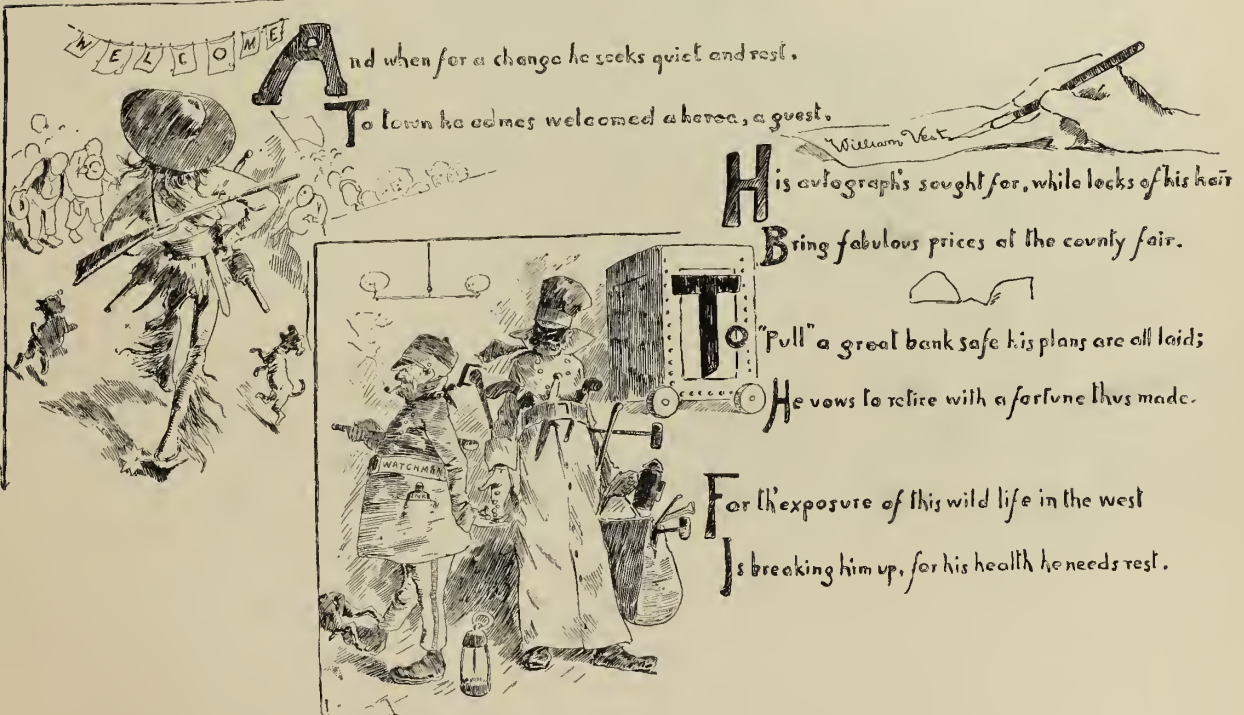 WELCOME
And when for a change he seeks quiet and rest.
To town he comes welcomed a heroe, a guest.
William Vest
His autograph's sought for, while locks of his hair
Bring fabulous prices at the county fair.
To "Pull" a great bank safe his plans are all laid;
He vows to retire with a fortune thus made.
WATCHMAN
For th'exposure of this wild life in the west
Is breaking him up, for his health he needs rest.